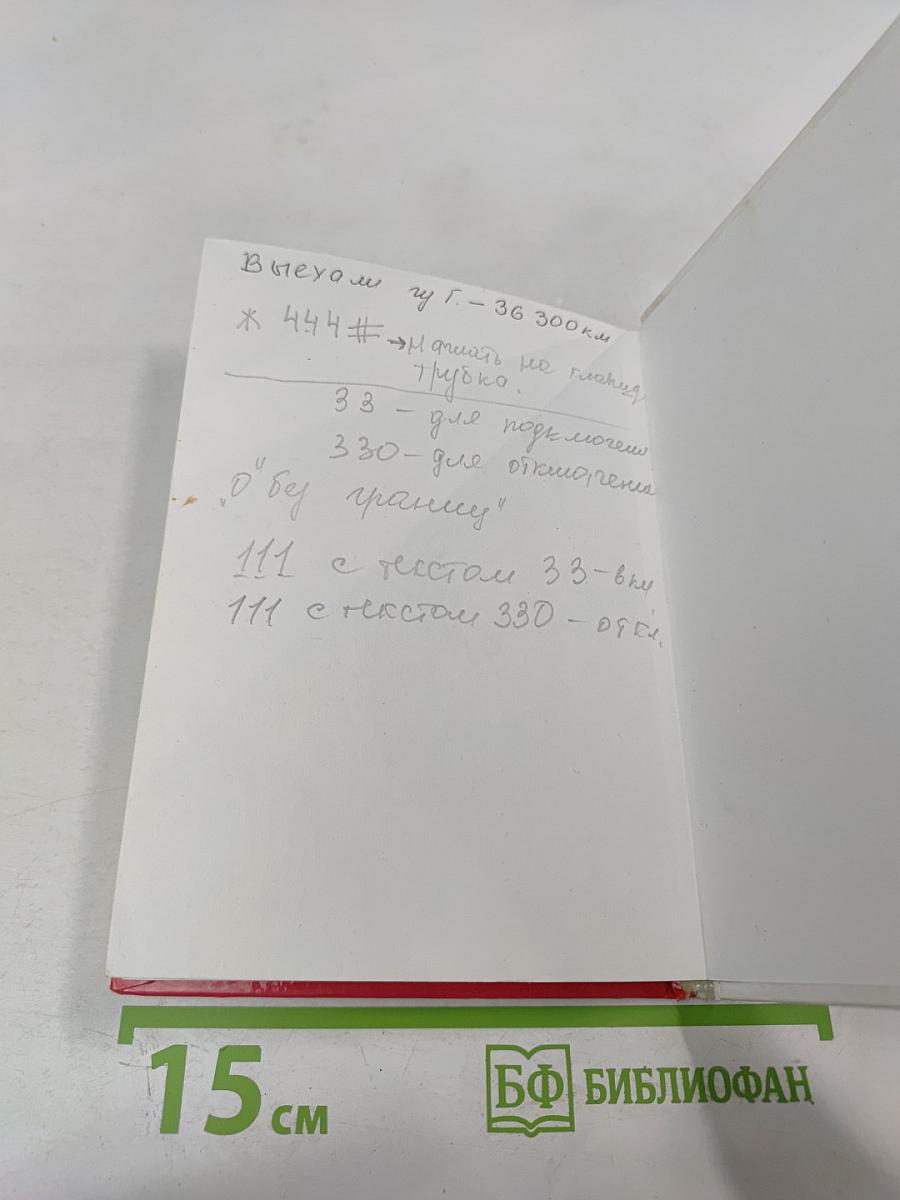 Выехали из Г. – 36 300 км
* 444 # → Нажать на клавишу
трубка.
33 – для подключения
330 – для отключения
„0" без границ"
111 с текстом 33 – вкл
111 с текстом 330 – откл.
15 см
БФ БИБЛИОФАН